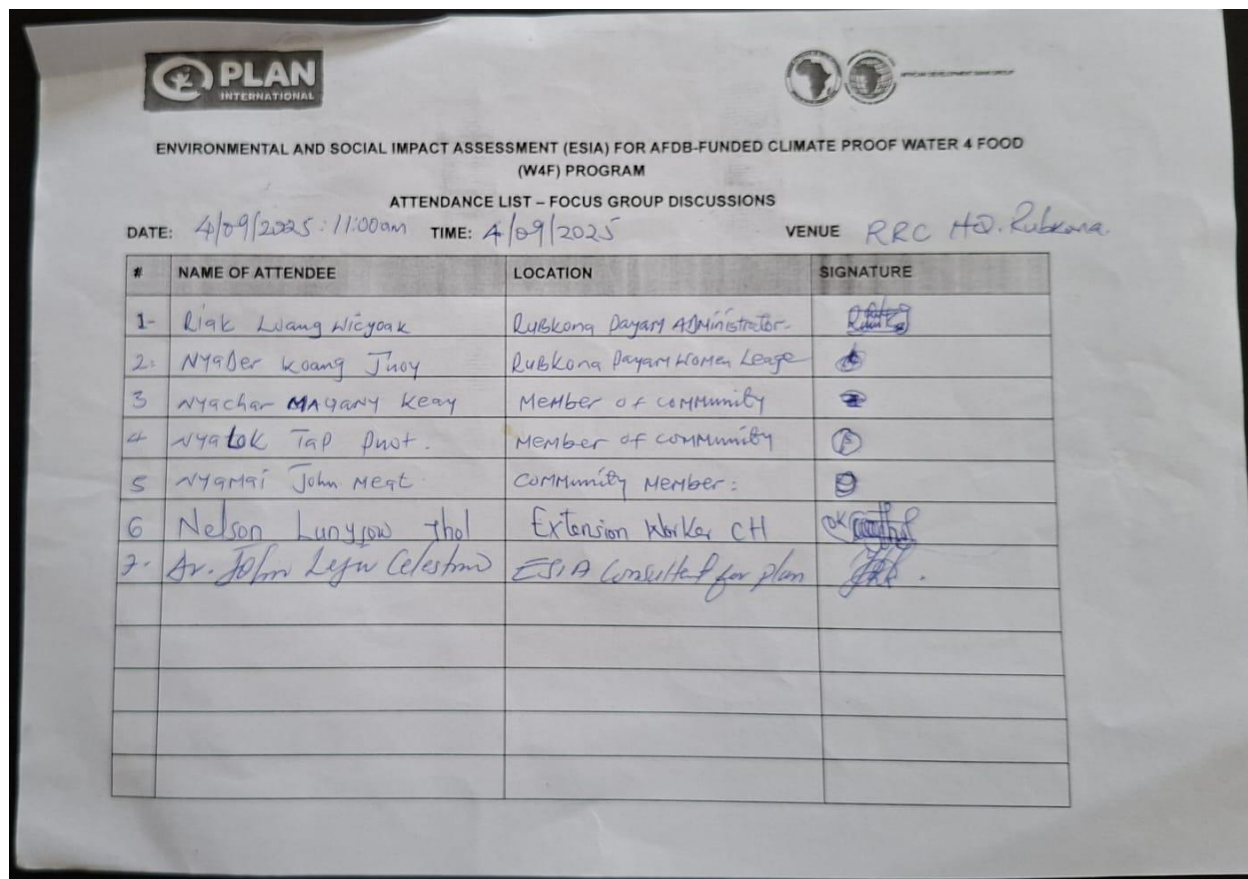 PLAN
INTERNATIONAL
AFRICAN DEVELOPMENT BANK GROUP
ENVIRONMENTAL AND SOCIAL IMPACT ASSESSMENT (ESIA) FOR AFDB-FUNDED CLIMATE PROOF WATER 4 FOOD
(W4F) PROGRAM
ATTENDANCE LIST – FOCUS GROUP DISCUSSIONS
DATE: 4/09/2025: 11:00am TIME: 4/09/2025 VENUE RRC HQ. Rubkona.
# NAME OF ATTENDEE LOCATION SIGNATURE
1- Riak Luang Wicyoak Rubkona Payam Administrator-
2. Nyader Koang Juoy Rubkona Payam Women Leage
3 Nyachar Magany Keay Member of community
4 Nyatok Tap Puot. Member of community
5 Nyamai John Meat Community Member:
6 Nelson Lunyjow Thol Extension Worker CH
7. Dr. John Leju Celestino ESIA Consultant for plan